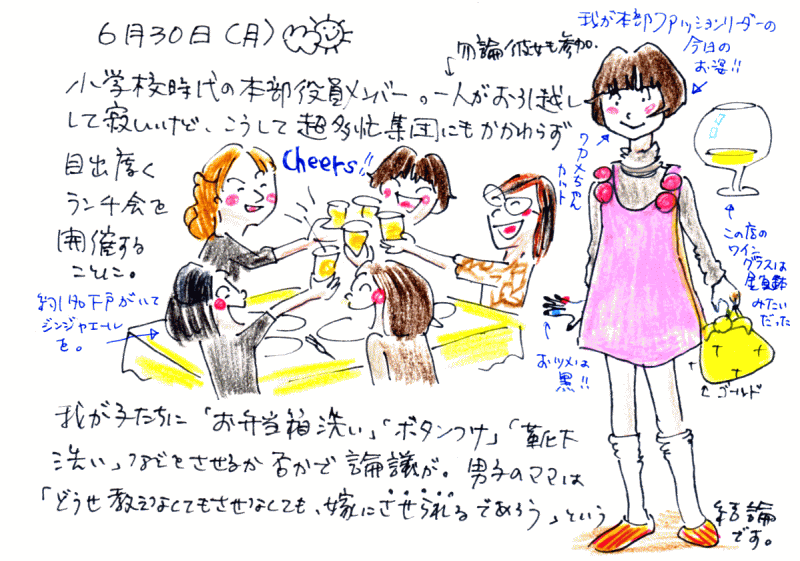 6月30日(月)
勿論彼女も参加.
我が本部ファッションリーダーの
今日の
お姿!!
小学校時代の本部役員メンバー。一人がお引越し
して寂しいけど、こうして超多忙集団にもかかわらず
目出度く
ランチ会を
開催する
ことに。
Cheers!!
ワカメちゃん
カット
この店の
ワイン
グラスは
金魚鉢
みたい
だった
約1名下戸がいて
ジンジャエール
を。
おツメは
黒!!
ゴールド
我が子たちに「お弁当箱洗い」「ボタンつけ」「靴下
洗い」などをさせるか否かで論議が。男子のママは
「どうせ教えなくてもさせなくても、嫁にさせられるであろう」という
結論
です。